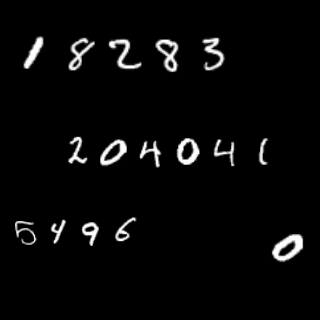 18283
204041
5496
0